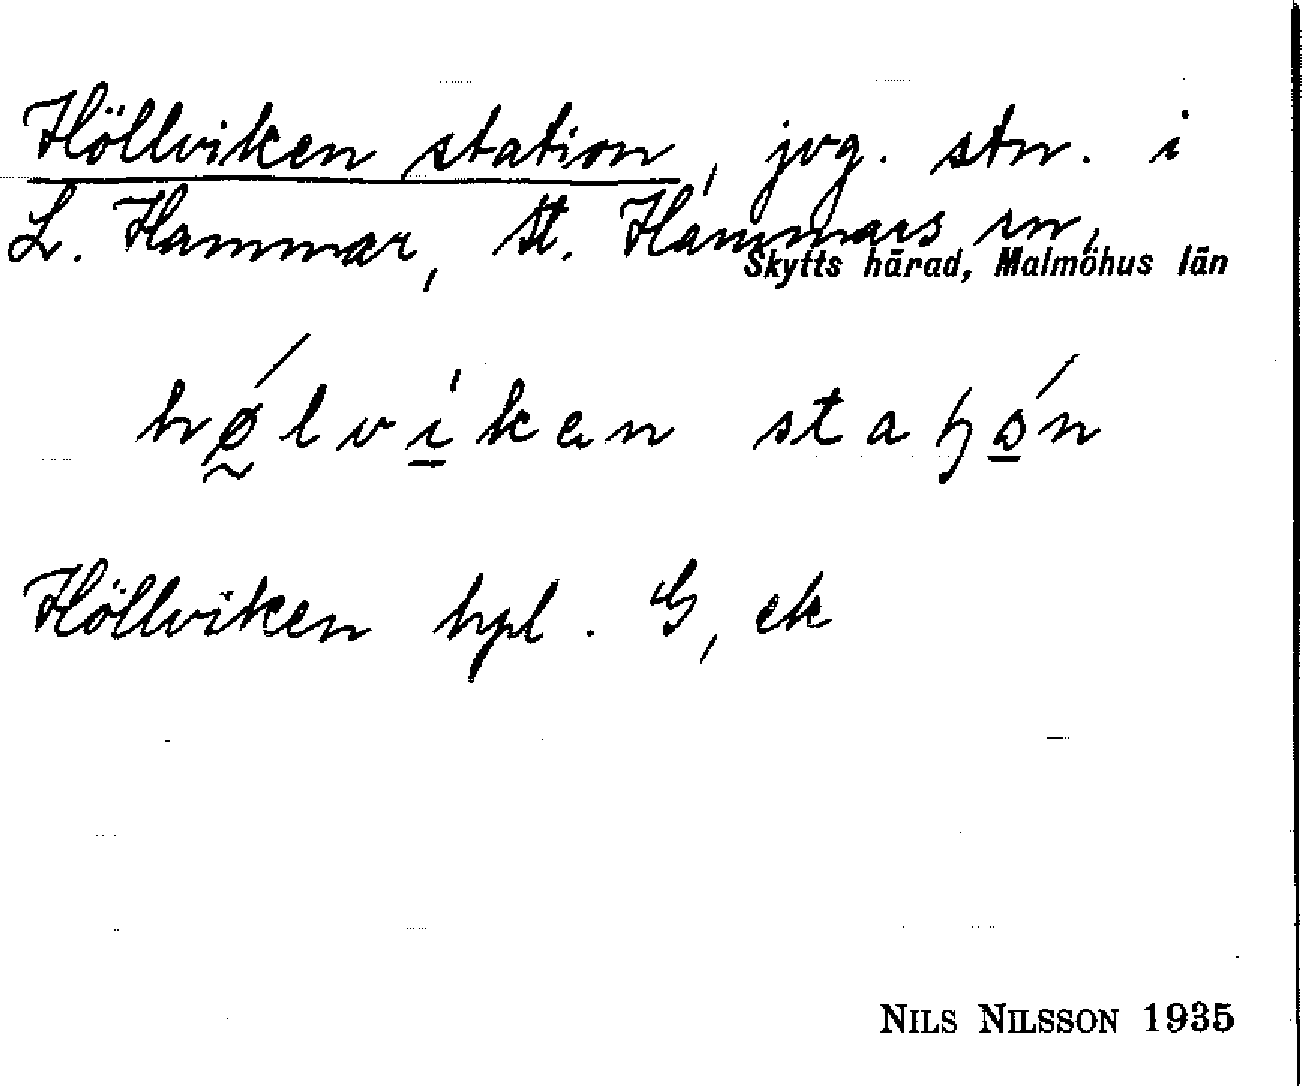 Höllviken station, jvg. stn. i
L. Hammar, St. Hammars sn,
Skytts härad, Malmöhus län
hǿ̰lvi̱̍ken staꜧó̱n
Höllviken hpl. G, ek
NILS NILSSON 1935